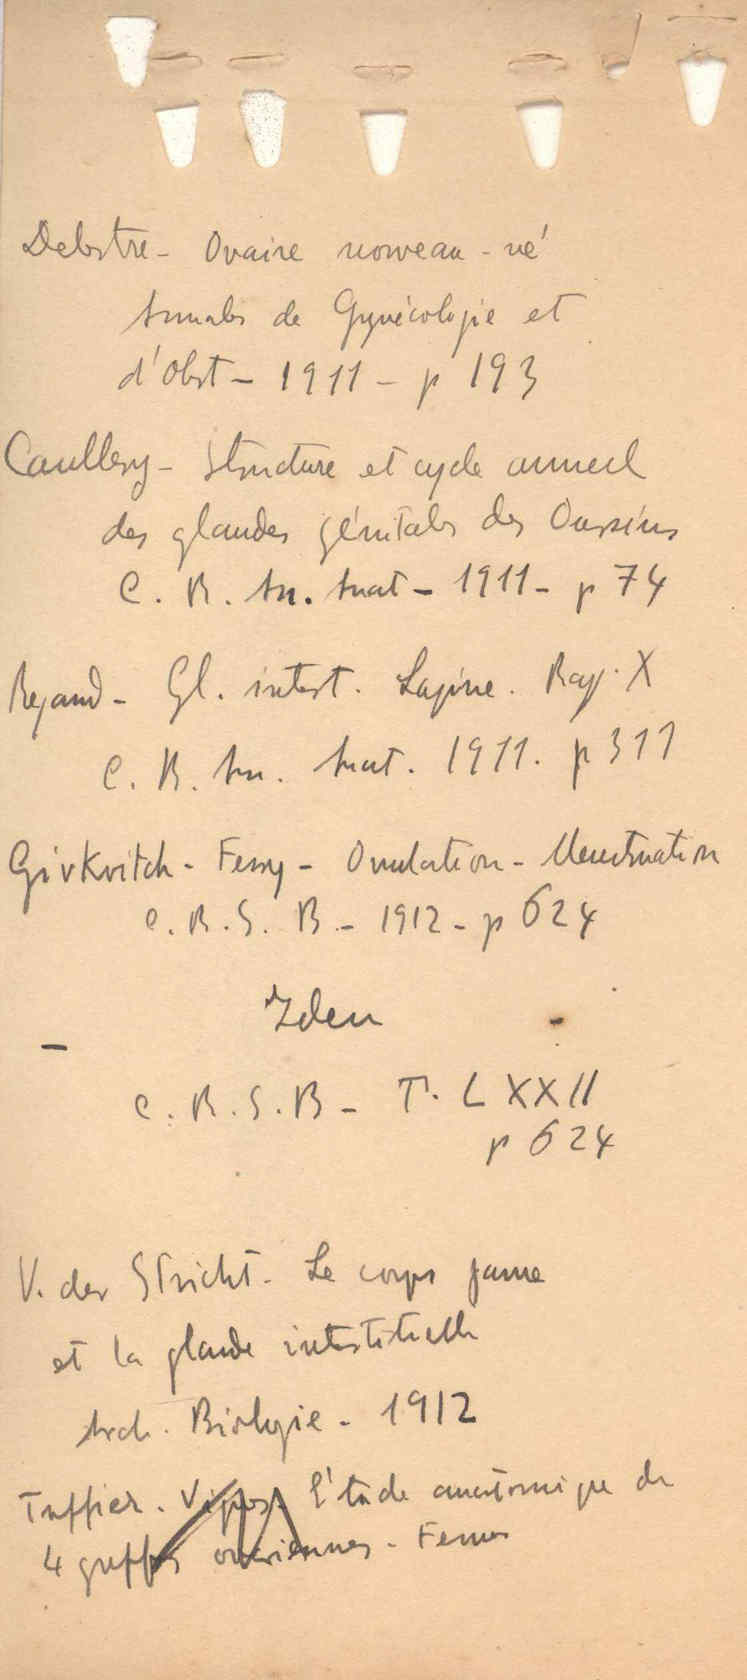 Delestre - Ovaire nouveau-né
Annales de Gynécologie et
d'Obst - 1911 - p 193
Caullery - Structure et cycle annuel
des glandes génitales des Oursins
C. R. An. Anat - 1911 - p 74
Regaud - Gl. interst. Lapine. Ray. X
C. R. An. Anat. 1911. p 311
Givkvitch - Ferry - Ovulation - Menstruation
C. R. S. B - 1912 - p 624
Iden
C. R. S. B - T. LXXII
p 624
V. der Stricht - Le corps jaune
et la glande interstitielle
Arch. Biologie - 1912
Tuffier. Vignes. L'étude anatomique de
4 greffes ovariennes - Femes